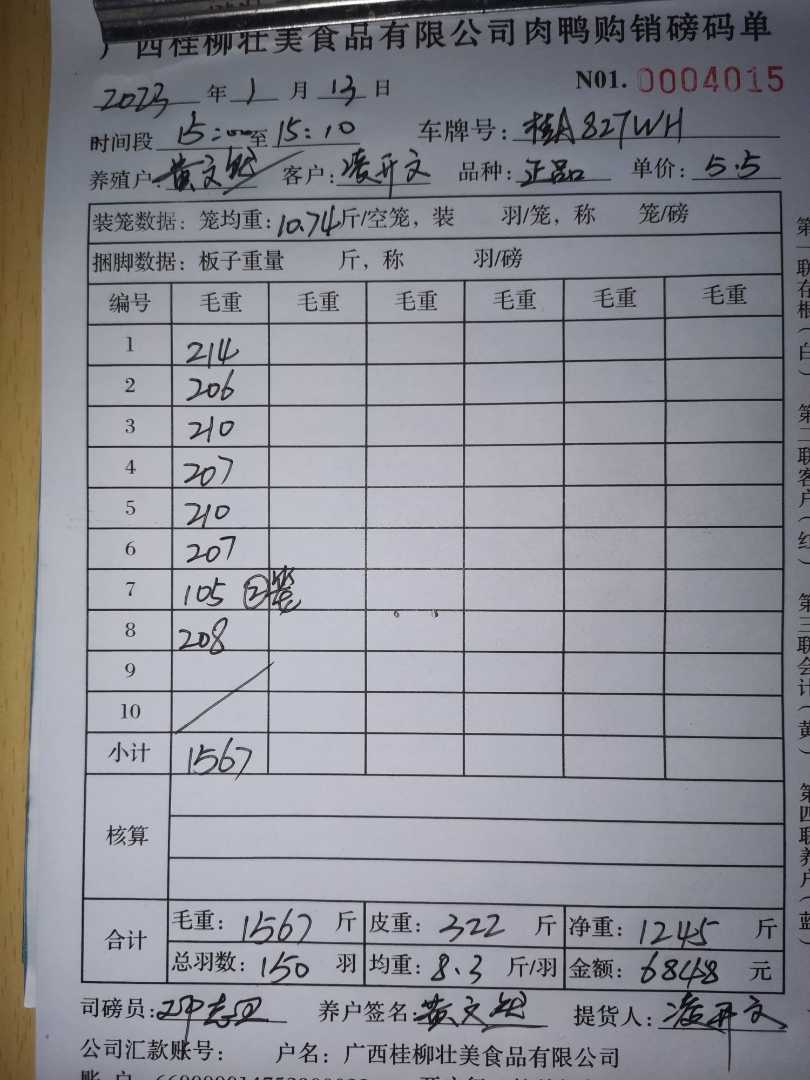 广西桂柳壮美食品有限公司肉鸭购销磅码单
2023年1月13日 N01. 0004015
时间段15:00至15:10 车牌号:桂A827WH
养殖户:黄文 客户:凌开文 品种:正品 单价:5.5
装笼数据:笼均重:10.74斤/空笼,装 羽/笼,称 笼/磅
捆脚数据:板子重量 斤,称 羽/磅
编号 毛重 毛重 毛重 毛重 毛重 毛重
1 214
2 206
3 210
4 207
5 210
6 207
7 105 ②笼
8 208
9
10
小计 1567
核算
合计 毛重:1567斤 皮重:322斤 净重:1245斤
总羽数:150羽 均重:8.3斤/羽 金额:6848元
司磅员: 养户签名:黄文 提货人:凌开文
公司汇款账号: 户名:广西桂柳壮美食品有限公司
第一联存根(白) 第二联客户(红) 第三联会计(黄) 第四联养户(蓝)